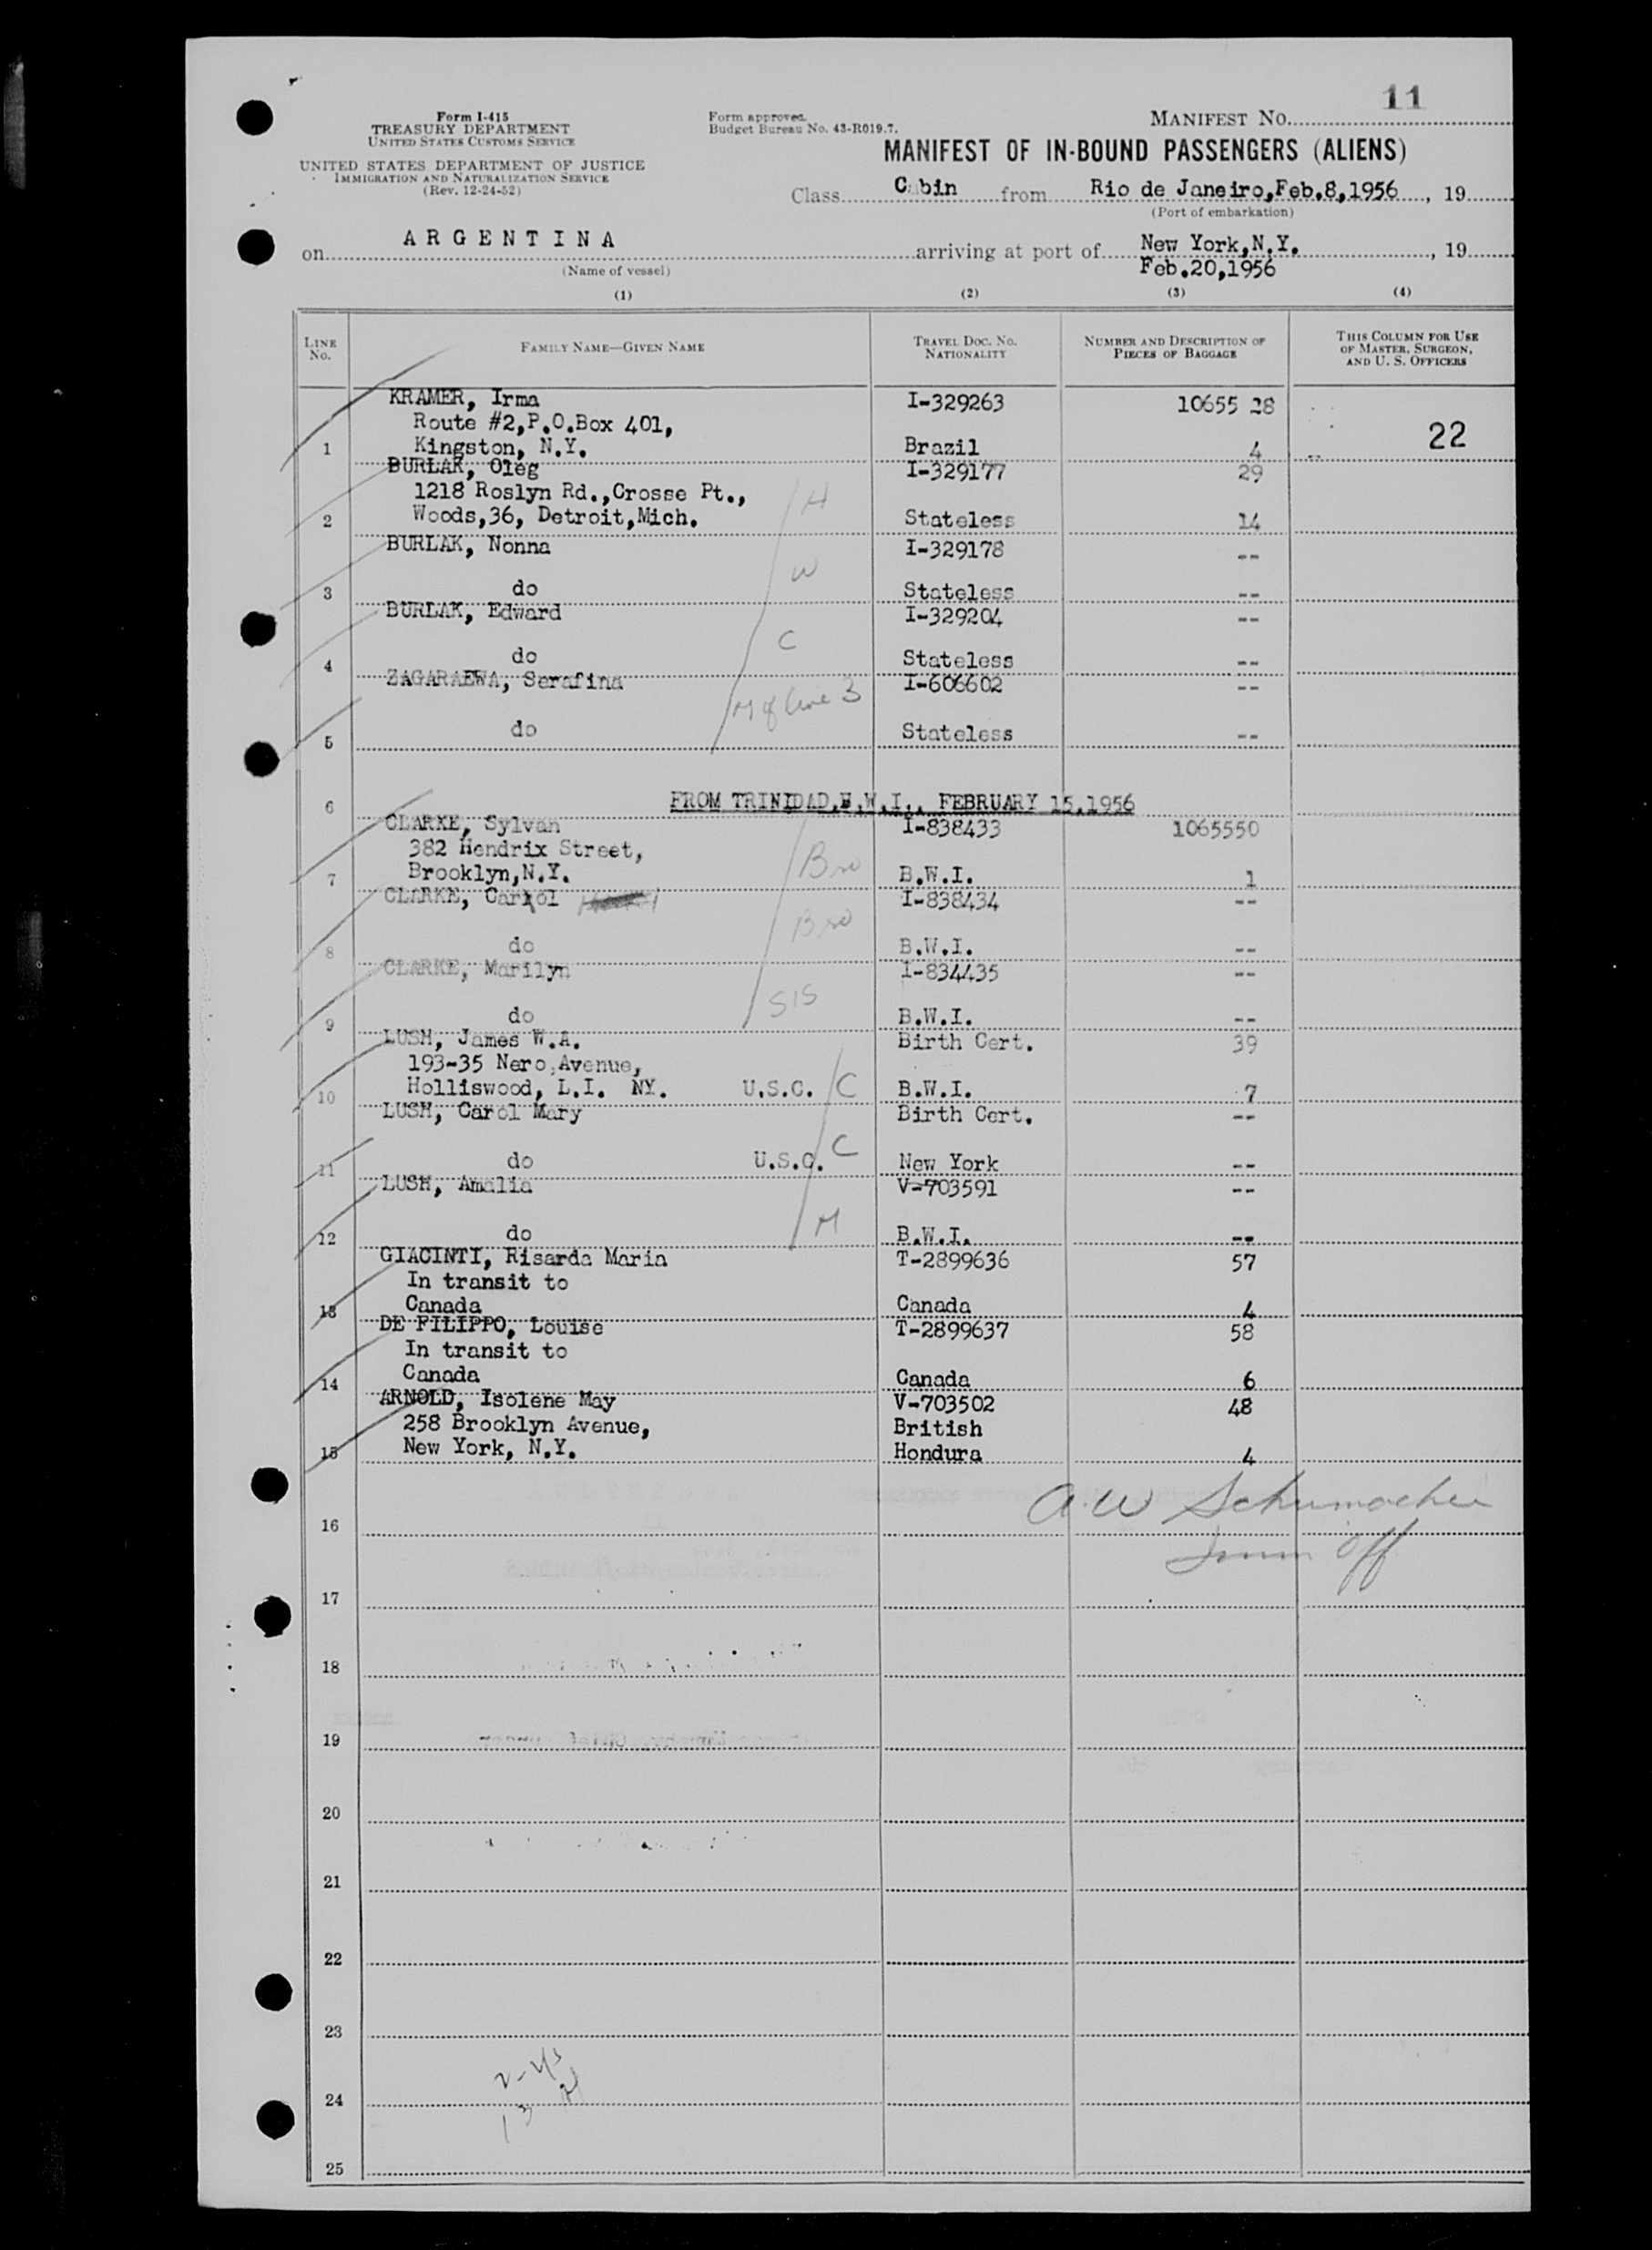 11
Form I-415
TREASURY DEPARTMENT
UNITED STATES CUSTOMS SERVICE
UNITED STATES DEPARTMENT OF JUSTICE
IMMIGRATION AND NATURALIZATION SERVICE
(Rev. 12-24-52)
Form approved.
Budget Bureau No. 43-R019.7.
MANIFEST No.
MANIFEST OF IN-BOUND PASSENGERS (ALIENS)
Class Cabin from Rio de Janeiro,Feb.8,1956, 19
(Port of embarkation)
on ARGENTINA arriving at port of New York,N.Y., 19
Feb.20,1956
(Name of vessel)
(1) (2) (3) (4)
LINE No. FAMILY NAME—GIVEN NAME TRAVEL DOC. NO. NATIONALITY NUMBER AND DESCRIPTION OF PIECES OF BAGGAGE THIS COLUMN FOR USE OF MASTER, SURGEON, AND U. S. OFFICERS
KRAMER, Irma I-329263 10655 28
Route #2,P.O.Box 401,
1 Kingston, N.Y. Brazil 4 22
BURLAK, Oleg I-329177 29
1218 Roslyn Rd.,Crosse Pt., H
2 Woods,36, Detroit,Mich. Stateless 14
BURLAK, Nonna I-329178 --
W
3 do Stateless --
BURLAK, Edward I-329204 --
C
4 do Stateless --
ZAGARAEWA, Serafina I-606602 --
M of line 3
5 do Stateless --
6 FROM TRINIDAD,B.W.I., FEBRUARY 15,1956
CLARKE, Sylvan I-838433 1065550
382 Hendrix Street,
Bro
7 Brooklyn,N.Y. B.W.I. 1
CLARKE, Carrol I-838434 --
Bro
8 do B.W.I. --
CLARKE, Marilyn I-834435 --
SIS
9 do B.W.I. --
LUSH, James W.A. Birth Cert. 39
193-35 Nero Avenue,
10 Holliswood, L.I. NY. U.S.C. C B.W.I. 7
LUSH, Carol Mary Birth Cert. --
11 do U.S.C. C New York --
LUSH, Amalia V-703591 --
M
12 do B.W.I. --
GIACINTI, Risarda Maria T-2899636 57
In transit to
13 Canada Canada 4
DE FILIPPO, Louise T-2899637 58
In transit to
14 Canada Canada 6
ARNOLD, Isolene May V-703502 48
258 Brooklyn Avenue, British
15 New York, N.Y. Hondura 4
A.W Schumacher
16
Imm Off
17
18
19
20
21
22
23
24
25